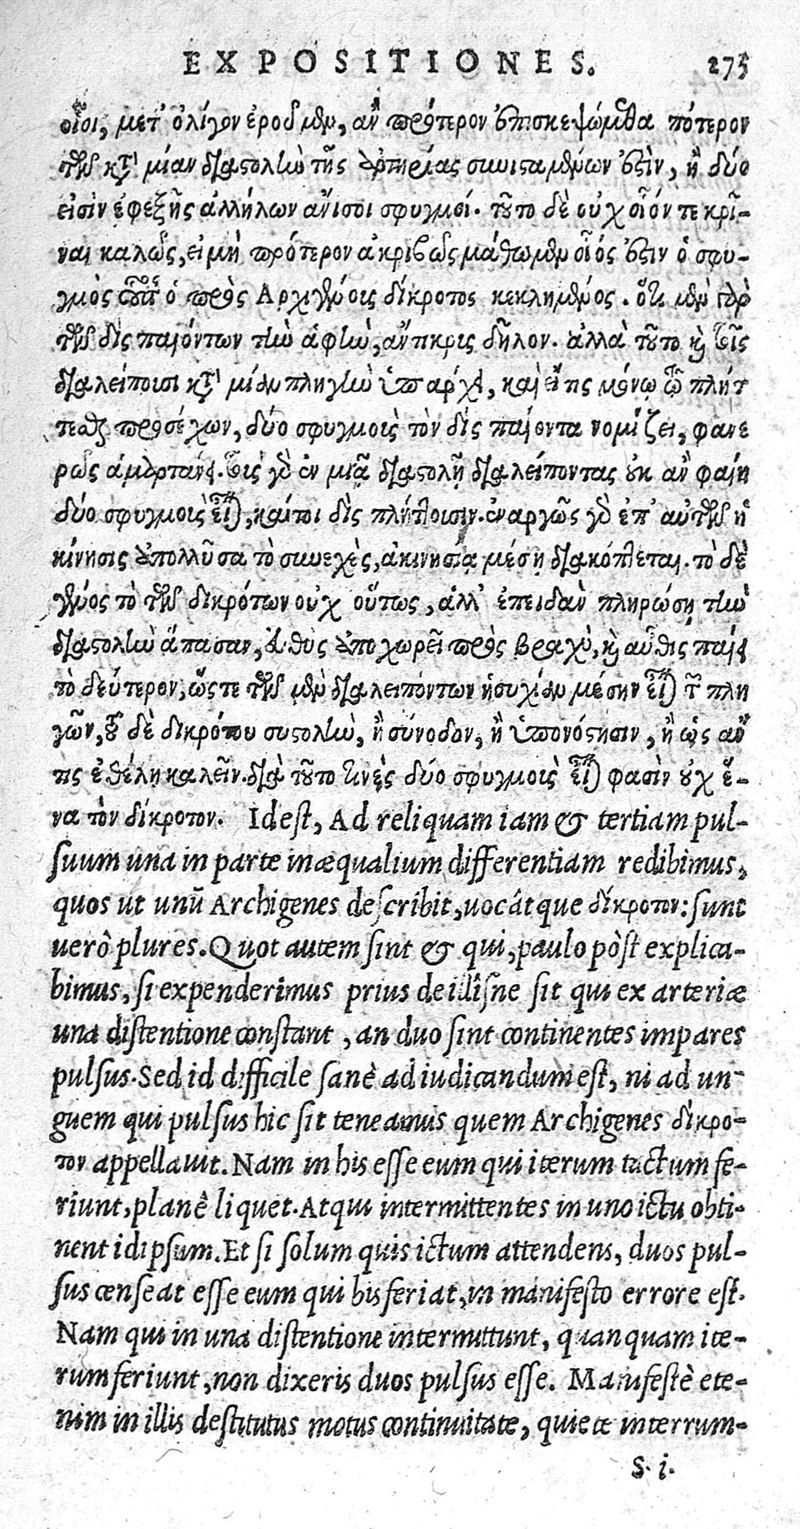 EXPOSITIONES. 275
οἷοι, μετ' ὀλίγον ἐροῦμεν, ἂν πρότερον ἐπισκεψώμεθα πότερον
τῶν κατὰ μίαν διαστολὴν τῆς ἀρτηρίας συνισταμένων ἐστὶν, ἢ δύο
εἰσὶν ἐφεξῆς ἀλλήλων ἄνισοι σφυγμοί. τοῦτο δὲ οὐχ οἷόν τε κρῖ-
ναι καλῶς, εἰ μὴ πρότερον ἀκριβῶς μάθωμεν οἷός ἐστιν ὁ σφυ-
γμὸς οὗτος ὁ πρὸς Ἀρχιγένους δίκροτος κεκλημένος. ὅτι μὲν γὰρ
τῶν δὶς παιόντων τὴν ἁφὴν, ἄντικρις δῆλον. ἀλλὰ τοῦτο καὶ τοῖς
διαλείπουσι κατὰ μίαν πληγὴν ὑπάρχει, καὶ εἴ τις μόνῳ τῷ πλήτ
τεσθαι προσέχων, δύο σφυγμοὺς τὸν δὶς παίοντα νομίζει, φανε
ρῶς ἁμαρτάνει. τοὺς γὰρ ἐν μιᾷ διαστολῇ διαλείποντας οὐκ ἂν φαίη
δύο σφυγμοὺς εἶναι, καίτοι δὶς πλήττουσιν. ἐναργῶς γὰρ ἐπ' αὐτῶν ἡ
κίνησις ἀπολλῦσα τὸ συνεχὲς, ἀκινησίᾳ μέσῃ διακόπτεται. τὸ δὲ
γένος τὸ τῶν δικρότων οὐχ οὕτως, ἀλλ' ἐπειδὰν πληρώσῃ τὴν
διαστολὴν ἅπασαν, εὐθὺς ὑποχωρεῖ πρὸς βραχὺ, καὶ αὖθις παίει
τὸ δεύτερον, ὥστε τῶν μὲν διαλειπόντων ἡσυχίαν μέσην εἶναι τῶν πλη
γῶν, τοῦ δὲ δικρότου συστολὴν, ἢ σύνοδον, ἢ ὑπονόστησιν, ἢ ὡς ἄν
τις ἐθέλῃ καλεῖν. διὰ τοῦτο τινὲς δύο σφυγμοὺς εἶναι φασὶν οὐχ ἕ-
να τὸν δίκροτον. Idest, Ad reliquam iam & tertiam pul-
suum una in parte inæqualium differentiam redibimus,
quos ut unũ Archigenes describit, uocátque δίκροτον: sunt
uerò plures. Quot autem sint & qui, paulo pòst explica-
bimus, si expenderimus prius de illisne sit qui ex arteriæ
una distentione constant, an duo sint continentes impares
pulsus. Sed id difficile sanè adiudicandum est, ni ad un-
guem qui pulsus hic sit teneamus quem Archigenes δίκρο-
τον appellauit. Nam in his esse eum qui iterum tactum fe-
riunt, planè liquet. Atqui intermittentes in uno ictu obti-
nent idipsum. Et si solum quis ictum attendens, duos pul-
sus censeat esse eum qui bis feriat, in manifesto errore est.
Nam qui in una distentione intermittunt, quanquam ite-
rum feriunt, non dixeris duos pulsus esse. Manifestè ete-
nim in illis destitutus motus continuitate, quiete interrum-
S. i.